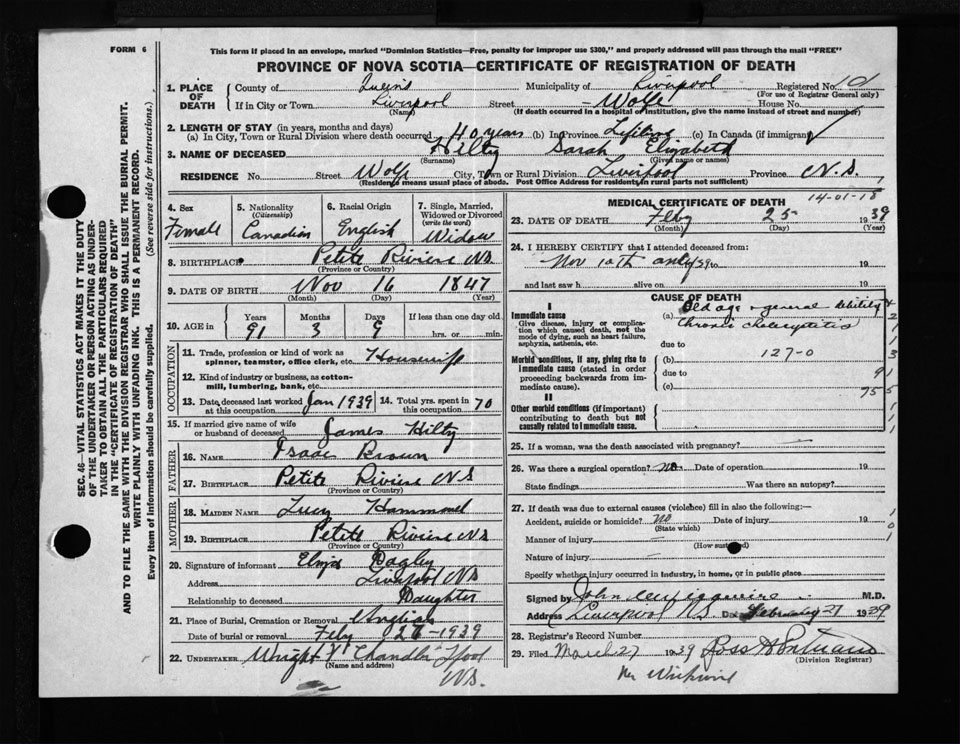 FORM 6
This form if placed in an envelope, marked "Dominion Statistics—Free, penalty for improper use $300," and properly addressed will pass through the mail "FREE"
PROVINCE OF NOVA SCOTIA—CERTIFICATE OF REGISTRATION OF DEATH
SEC. 46—VITAL STATISTICS ACT MAKES IT THE DUTY
OF THE UNDERTAKER OR PERSON ACTING AS UNDER-
TAKER TO OBTAIN ALL THE PARTICULARS REQUIRED
IN THE "CERTIFICATE OF REGISTRATION OF DEATH"
AND TO FILE THE SAME WITH THE DIVISION REGISTRAR WHO SHALL ISSUE THE BURIAL PERMIT.
WRITE PLAINLY WITH UNFADING INK. THIS IS A PERMANENT RECORD.
Every item of information should be carefully supplied. (See reverse side for instructions.)
1. PLACE OF DEATH County of Queens Municipality of Liverpool Registered No. 101
(For use of Registrar General only)
If in City or Town Liverpool Street Wolfe House No.
(Name) (If death occurred in a hospital or institution, give the name instead of street and number)
2. LENGTH OF STAY (in years, months and days)
(a) In City, Town or Rural Division where death occurred 40 years (b) In Province Lifetime (c) In Canada (if immigrant)
3. NAME OF DECEASED Hilty Sarah Elizabeth
(Surname) (Given name or names)
RESIDENCE No. Street Wolfe City, Town or Rural Division Liverpool Province N.S.
(Residence means usual place of abode. Post Office Address for residents in rural parts not sufficient)
4. Sex Female
5. Nationality (Citizenship) Canadian
6. Racial Origin English
7. Single, Married, Widowed or Divorced (write the word) Widow
8. BIRTHPLACE Petite Riviere NS
(Province or Country)
9. DATE OF BIRTH Nov 16 1847
(Month) (Day) (Year)
10. AGE in Years 91 Months 3 Days 9 If less than one day old
hrs. or min.
OCCUPATION
11. Trade, profession or kind of work as spinner, teamster, office clerk, etc. Housewife
12. Kind of industry or business, as cotton-mill, lumbering, bank, etc.
13. Date deceased last worked at this occupation Jan 1939 14. Total yrs. spent in this occupation 70
15. If married give name of wife or husband of deceased James Hilty
FATHER
16. Name Isaac Brown
17. Birthplace Petite Riviere NS
(Province or Country)
MOTHER
18. Maiden Name Lucy Hammond
19. Birthplace Petite Riviere NS
(Province or Country)
20. Signature of informant Eliza Bagley
Address Liverpool NS
Relationship to deceased Daughter
21. Place of Burial, Cremation or Removal Anglican
Date of burial or removal Feby 26-1939
22. UNDERTAKER Wright Chandler Lpool
(Name and address) NS.
MEDICAL CERTIFICATE OF DEATH
14-01-18
23. DATE OF DEATH Feby 25 1939
(Month) (Day) (Year)
24. I HEREBY CERTIFY that I attended deceased from:
Nov 10th only 39 to 19
and last saw h alive on 19
CAUSE OF DEATH
I
Immediate cause
Give disease, injury or complication which caused death, not the mode of dying, such as heart failure, asphyxia, asthenia, etc.
(a) Old age - general debility
Chronic cholecystitis
due to
Morbid conditions, if any, giving rise to immediate cause (stated in order proceeding backwards from immediate cause).
(b) 127-0
due to
(c)
II
Other morbid conditions (if important) contributing to death but not causally related to immediate cause.
25. If a woman, was the death associated with pregnancy?
26. Was there a surgical operation? no Date of operation 19
State findings Was there an autopsy?
27. If death was due to external causes (violence) fill in also the following:—
Accident, suicide or homicide? no Date of injury 19
(State which)
Manner of injury
(How sustained)
Nature of injury
Specify whether injury occurred in industry, in home, or in public place
Signed by John M.D.
Address Liverpool N.S. Date February 27 1939
28. Registrar's Record Number
29. Filed March 27 1939 Ross
(Division Registrar)